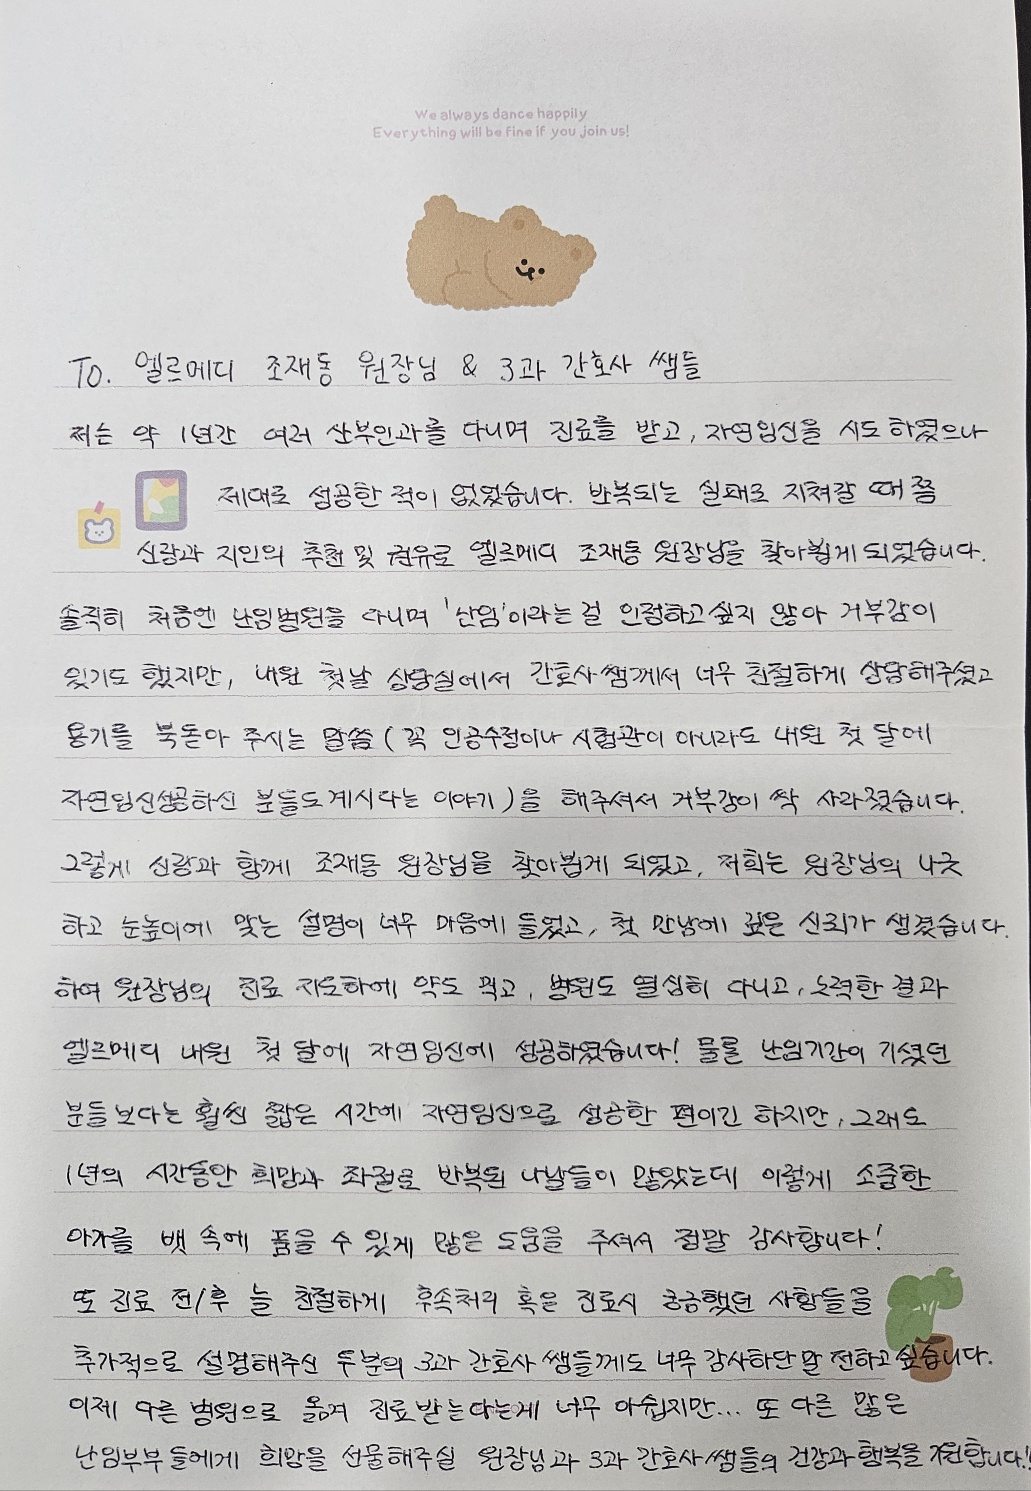 We always dance happily
Everything will be fine if you join us!
To. 엘르메디 조재동 원장님 & 3과 간호사 쌤들
저는 약 1년간 여러 산부인과를 다니며 진료를 받고, 자연임신을 시도 하였으나
제대로 성공한 적이 없었습니다. 반복되는 실패로 지쳐갈 때 쯤
신랑과 지인의 추천 및 권유로 엘르메디 조재동 원장님을 찾아뵙게 되었습니다.
솔직히 처음엔 난임병원을 다니며 '난임'이라는 걸 인정하고 싶지 않아 거부감이
있기도 했지만, 내원 첫날 상담실에서 간호사쌤께서 너무 친절하게 상담해주셨고
용기를 북돋아 주시는 말씀 (꼭 인공수정이나 시험관이 아니라도 내원 첫 달에
자연임신성공하신 분들도 계시다는 이야기)을 해주셔서 거부감이 싹 사라졌습니다.
그렇게 신랑과 함께 조재동 원장님을 찾아뵙게 되었고, 저희는 원장님의 나긋
하고 눈높이에 맞는 설명이 너무 마음에 들었고, 첫 만남에 깊은 신뢰가 생겼습니다.
하여 원장님의 진료 지도하에 약도 먹고, 병원도 열심히 다니고, 노력한 결과
엘르메디 내원 첫 달에 자연임신에 성공하였습니다! 물론 난임기간이 기셨던
분들보다는 훨씬 짧은 시간에 자연임신으로 성공한 편이긴 하지만, 그래도
1년의 시간동안 희망과 좌절로 반복된 나날들이 많았는데 이렇게 소중한
아가를 뱃 속에 품을 수 있게 많은 도움을 주셔서 정말 감사합니다!
또 진료 전/후 늘 친절하게 후속처리 혹은 진료시 궁금했던 사항들을
추가적으로 설명해주신 두분의 3과 간호사 쌤들께도 너무 감사하단 말 전하고 싶습니다.
이제 다른 병원으로 옮겨 진료받는다는게 너무 아쉽지만... 또 다른 많은
난임부부들에게 희망을 선물해주실 원장님과 3과 간호사쌤들의 건강과 행복을 기원합니다!!